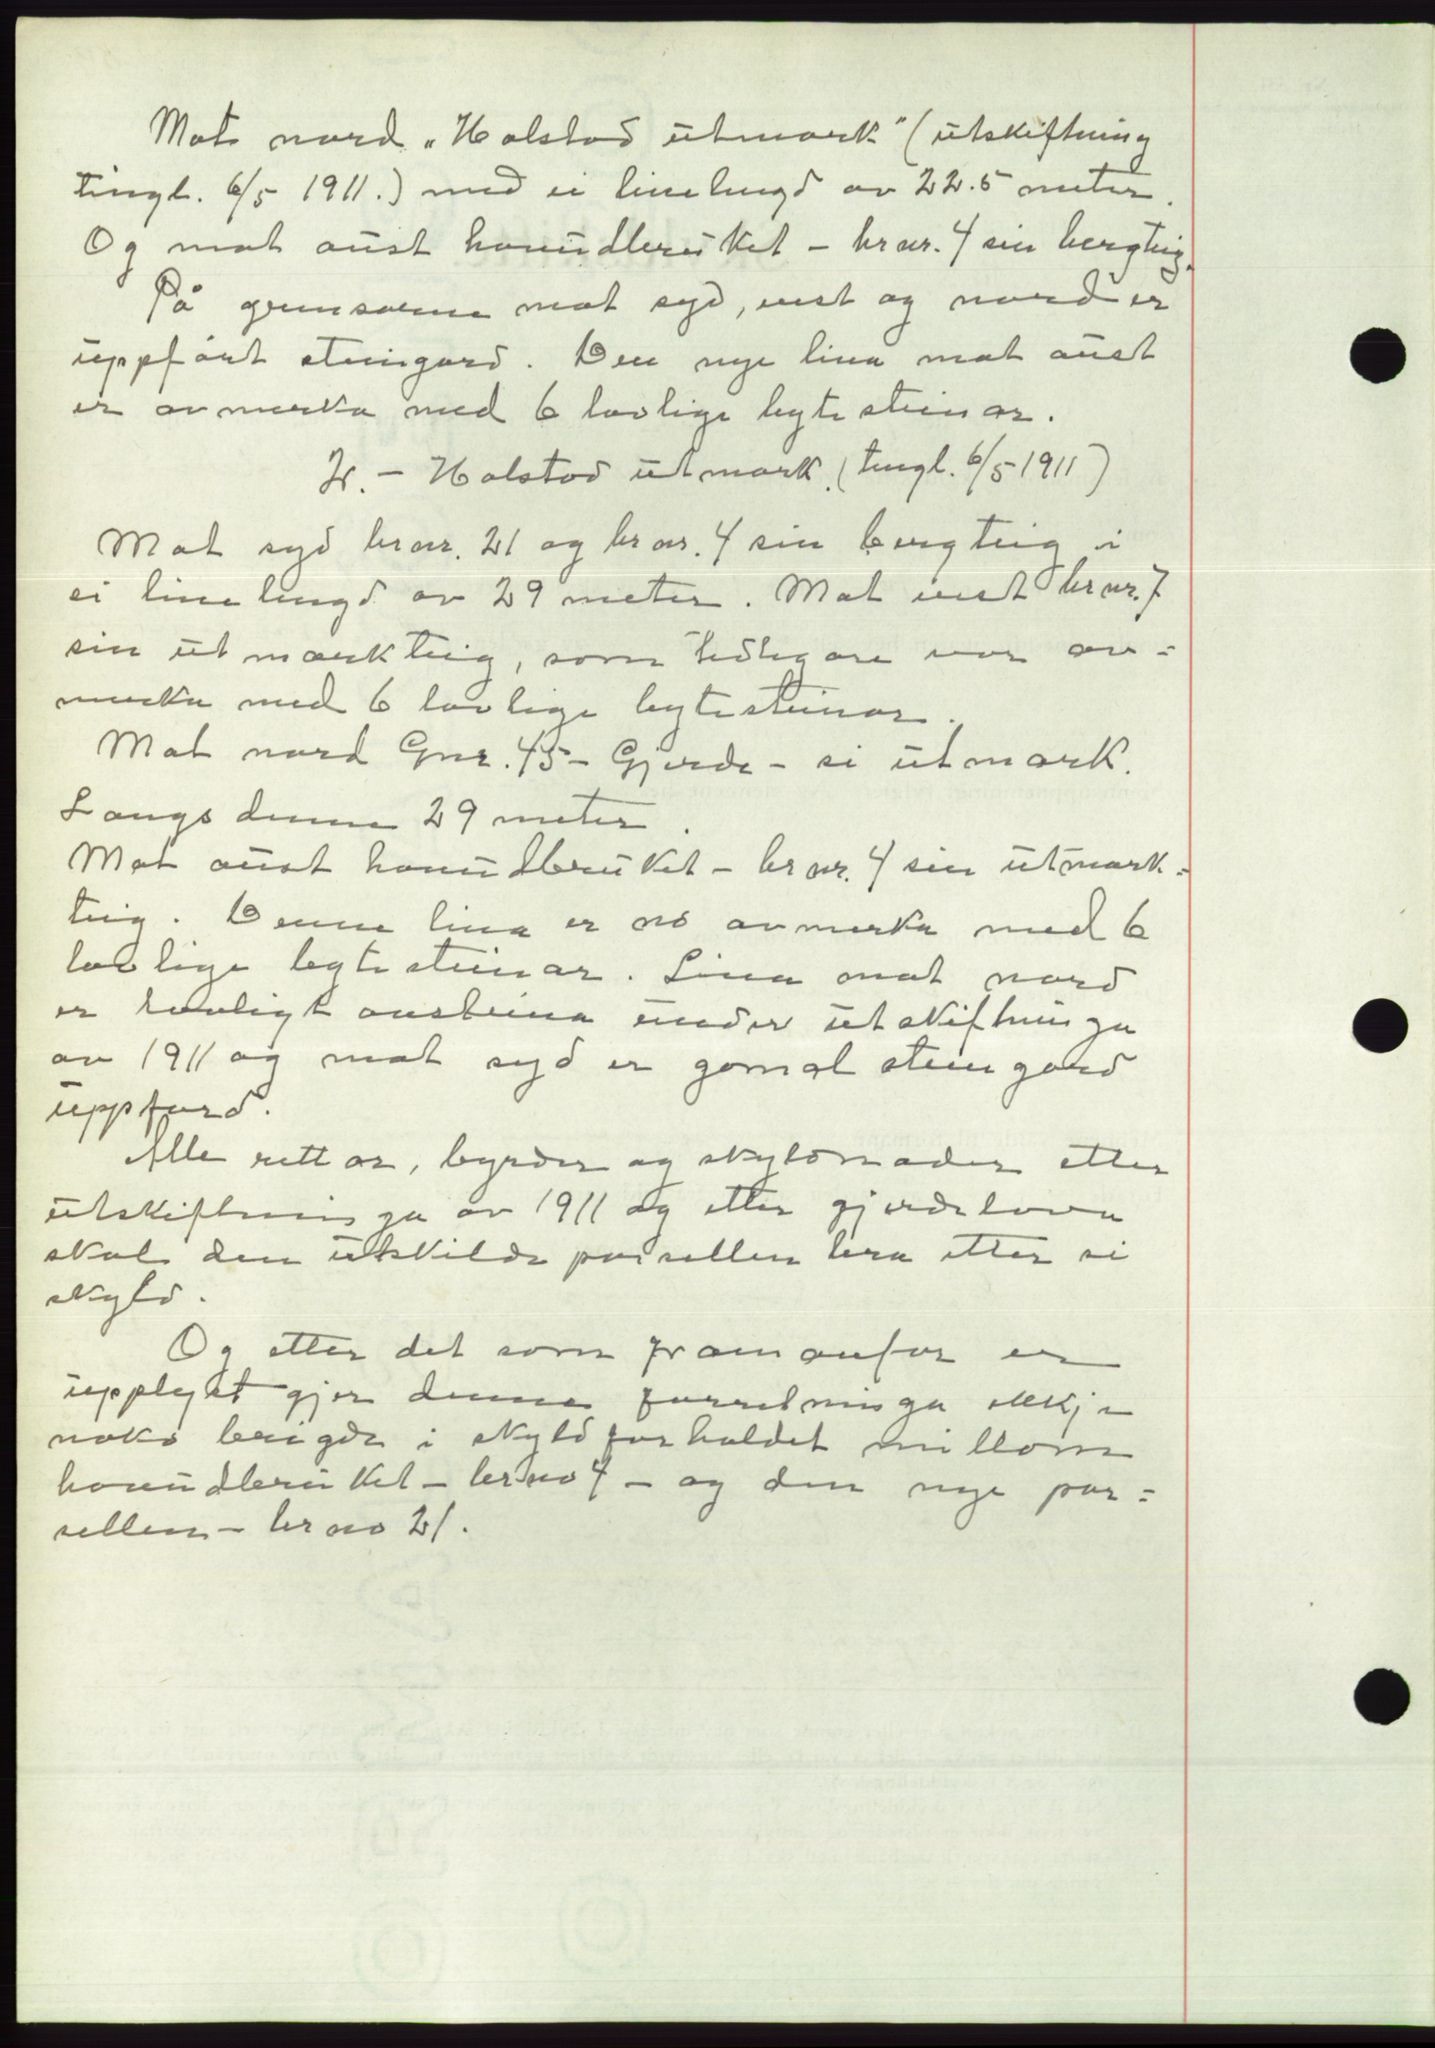 Mot nord „Holstad utmark" (utskiftning
tingl. 6/5 1911.) med ei linelengd av 22.5 meter.
Og mot aust hovudbruket - br nr. 4 sin bergteig.
På grensorna mot syd, vest og nord er
uppført steingard. Den nye lina mot aust
er avmerka med 6 lovlige bytesteinar.
2. - Holstad utmark. (tingl. 6/5 1911)
Mot syd br nr. 21 og br nr. 4 sin bergteig i
ei linelengd av 29 meter. Mot vest br nr. 7
sin utmarkteig, som tidligare var av=
merka med 6 lovlige bytesteinar.
Mot nord Gnr. 45 - Gjerde - si utmark.
Langs denne 29 meter.
Mot aust hovudbruket - br nr. 4 sin utmark=
teig. Denne lina er no avmerka med 6
lovlige bytesteinar. Lina mot nord
er lovligt under utskiftninga
av 1911 og mot syd er gomol steingard
uppførd.
Alle rettar, byrder og skyldnader etter
utskiftninga av 1911 og etter gjerdelova
skal den utskilde parsellen bra etter si
skyld.
Og etter det som framanfor er
upplyst gjer denne forretninga ikkje
noko brigde i skyldforholdet millom
hovudbruket - br no 4 - og den nye par=
sellen - br no 21.